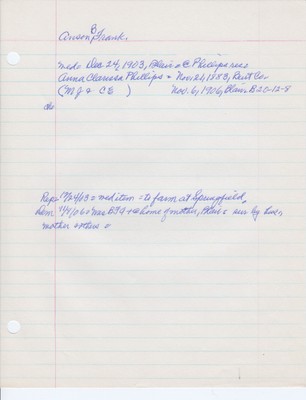 B
Anson, Frank.
med: Dec 24, 1903, Blair @ Phillips res
Anna Claressa Phillips * Nov. 21, 1883, Burt Co.
(M J & C E ) Nov. 6, 1906, Blair B 20-12-8
ch:
Rep: 12/24/03 = med item = to farm at Springfield,
Dem 11/9/06 = Mrs. B F A + @ home of mother, Blair = sur by hus,
mother + three =